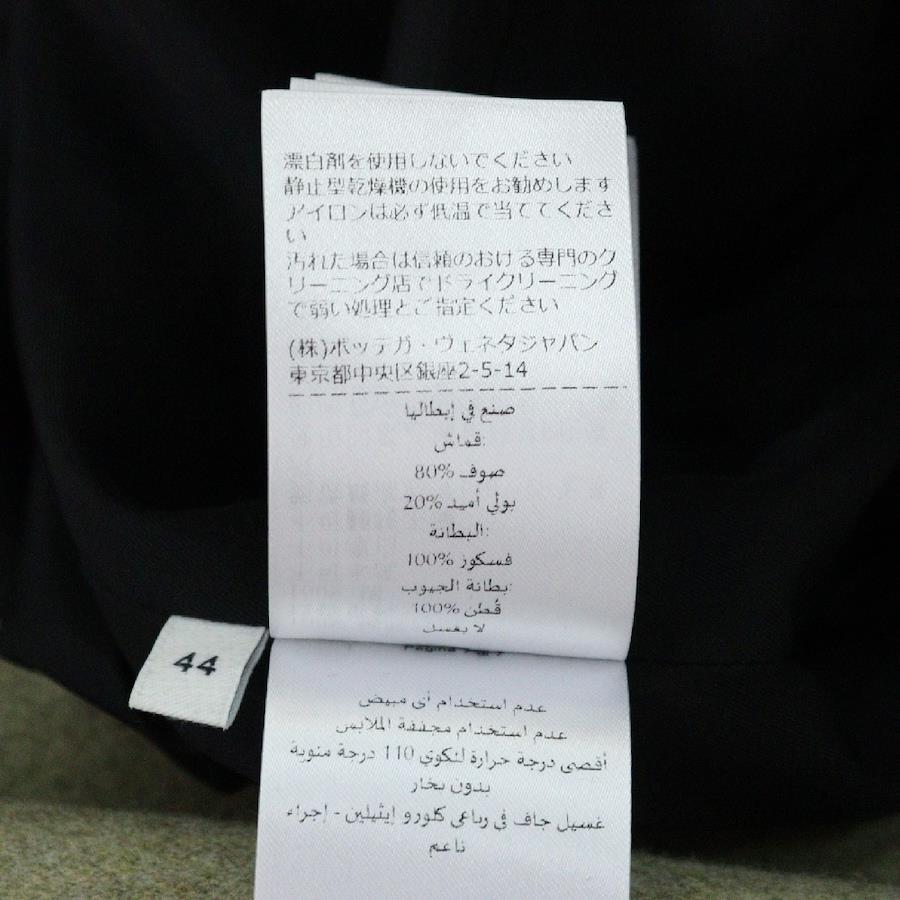 漂白剤を使用しないでください
静止型乾燥機の使用をお勧めします
アイロンは必ず低温で当ててくださ
い
汚れた場合は信頼のおける専門のク
リーニング店でドライクリーニング
で弱い処理とご指定ください
(株)ボッテガ・ヴェネタジャパン
東京都中央区銀座2-5-14
صنع في إيطاليا
قماش:
صوف 80%
بولي أميد 20%
البطانة:
فسكوز 100%
بطانة الجيوب:
قطن 100%
لا يغسل
44
عدم استخدام أي مبيض
عدم استخدام مجففة الملابس
أقصى درجة حرارة للكوي 110 درجة مئوية
بدون بخار
غسيل جاف في رباعي كلورو إيثيلين - إجراء
ناعم